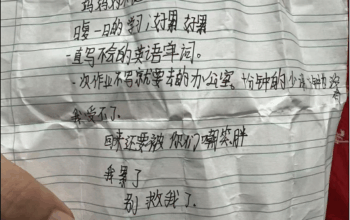 妈妈
日复一日的学习，好累 好累
一直写不会的英语单词。
一次作业不写就要去的办公室。十分钟的
我受不了。
回来还要被 你们嘲笑胖
我累了
别 救我了.